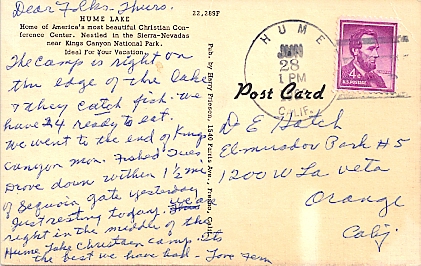 Dear Folks. Thurs.
HUME LAKE
22,289F
Home of America's most beautiful Christian Con-
ference Center. Nestled in the Sierra-Nevadas
near Kings Canyon National Park.
Ideal For Your Vacation.
The camp is right on
the edge of the lake
& they catch fish. we
have 24 ready to eat.
We went to the end of Kings
Canyon mon. Fished Tues
Drove down within 1 1/2 mi
of Sequoia gate yesterday
Just resting today. we are
right in the middle of the
Hume Lake Christian camp. Its
the best we have had - Love Fern
Pub. by Harry Freeson, 1540
HUME
28
1 PM
CALIF.
4¢
U.S. POSTAGE
Post Card
D E Hatch
Park #5
1200 W La Veta
Orange
Calif.